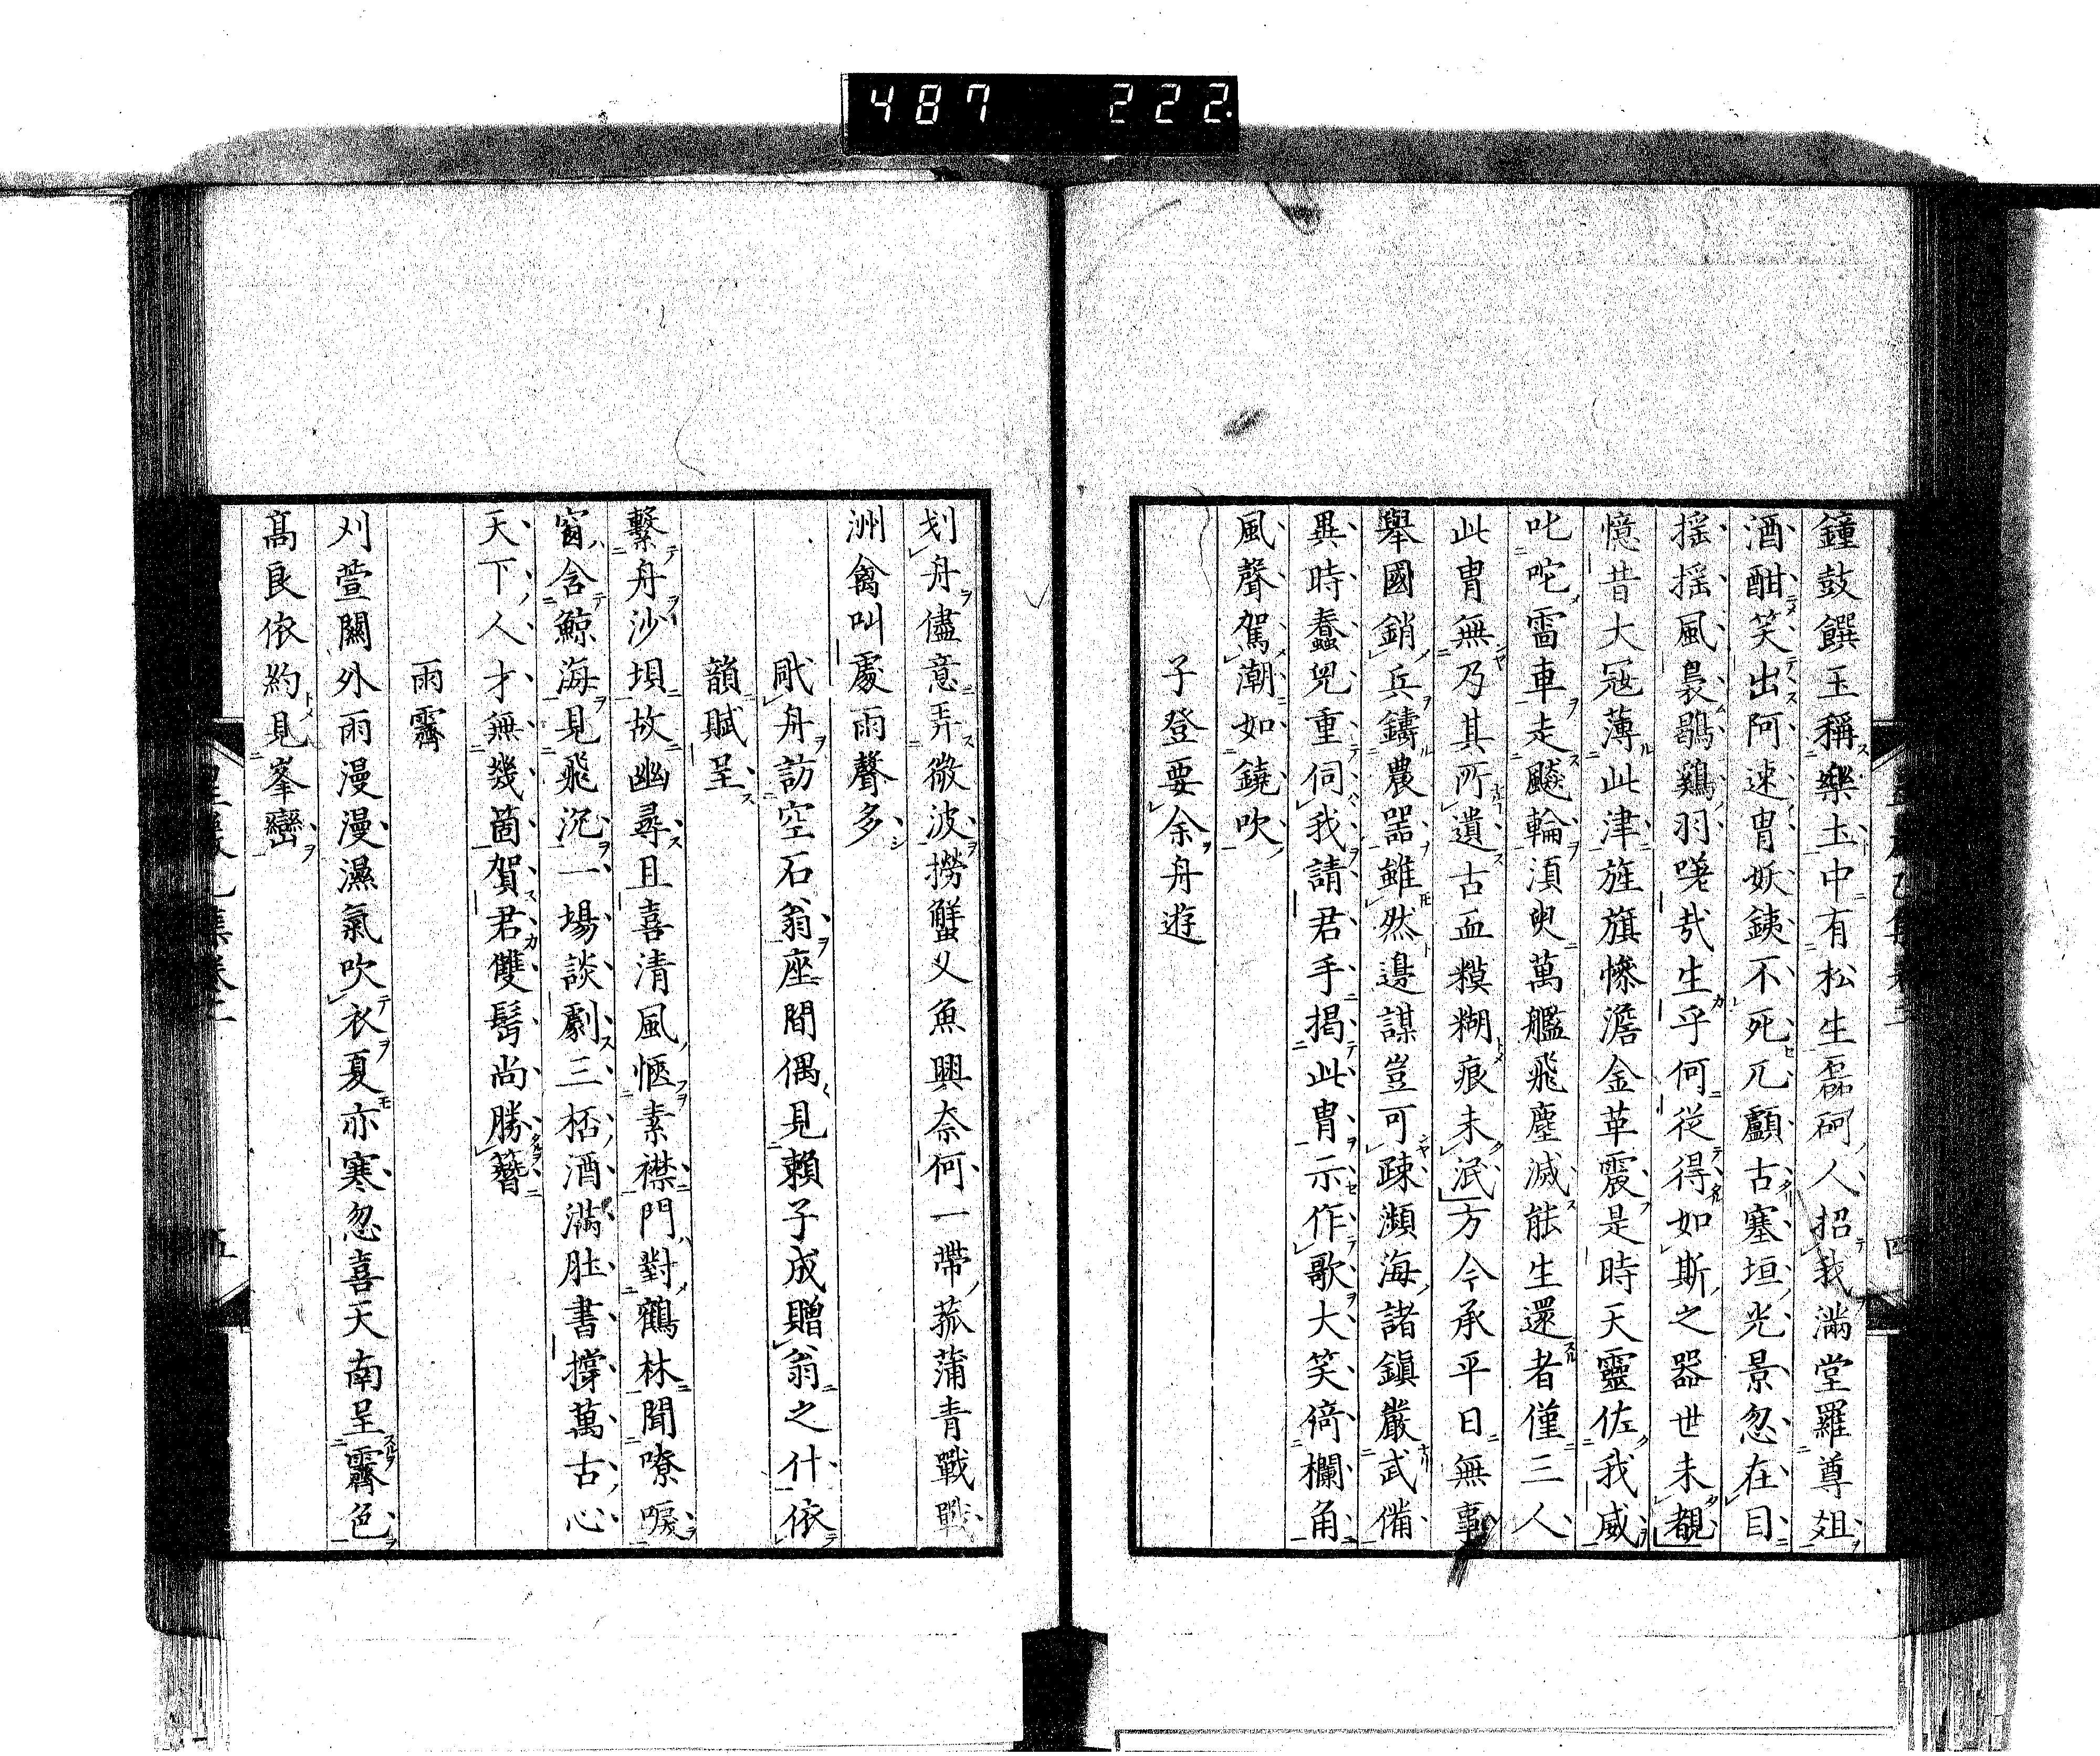 487 222
鐘鼓饌玉稱樂土中有松生磊砢人招我滿堂羅尊俎
酒酣笑出阿速冑妖銕不死兀顱古塞垣光景忽在目
揺揺風裊鶡鷄羽嘆哉生乎何従得如斯之器世未覩
憶昔大冦薄此津旌旗慘澹金革震是時天靈佐我威
叱咤雷車走飈輪湏臾萬艦飛塵滅能生還者僅三人
此冑無乃其所遺古血糢糊痕未泯方今承平日無事
舉國銷兵鑄農噐雖然邊謀豈可疎瀕海諸鎭嚴武備
異時蠢兒重伺我請君手掲此冑示作歌大笑倚欄角
風聲駕潮如鐃吹
子登要余舟遊
划舟儘意弄微波撈蟹乂魚興奈何一帶菰蒲青戰戰
洲禽叫處雨聲多
刷舟訪空石翁座間偶見賴子成贈翁之什依
韻賦呈
繫舟沙垻故幽尋且喜清風愜素襟門對鶴林聞嘹唳
窗含鯨海見飛沉一場談劇三桮酒滿肚書撐萬古心
天下人才無幾箇賀君雙髩尚勝簪
雨霽
刈萱關外雨漫漫濕氣吹衣夏亦寒忽喜天南呈霽色
髙良依約見峯巒